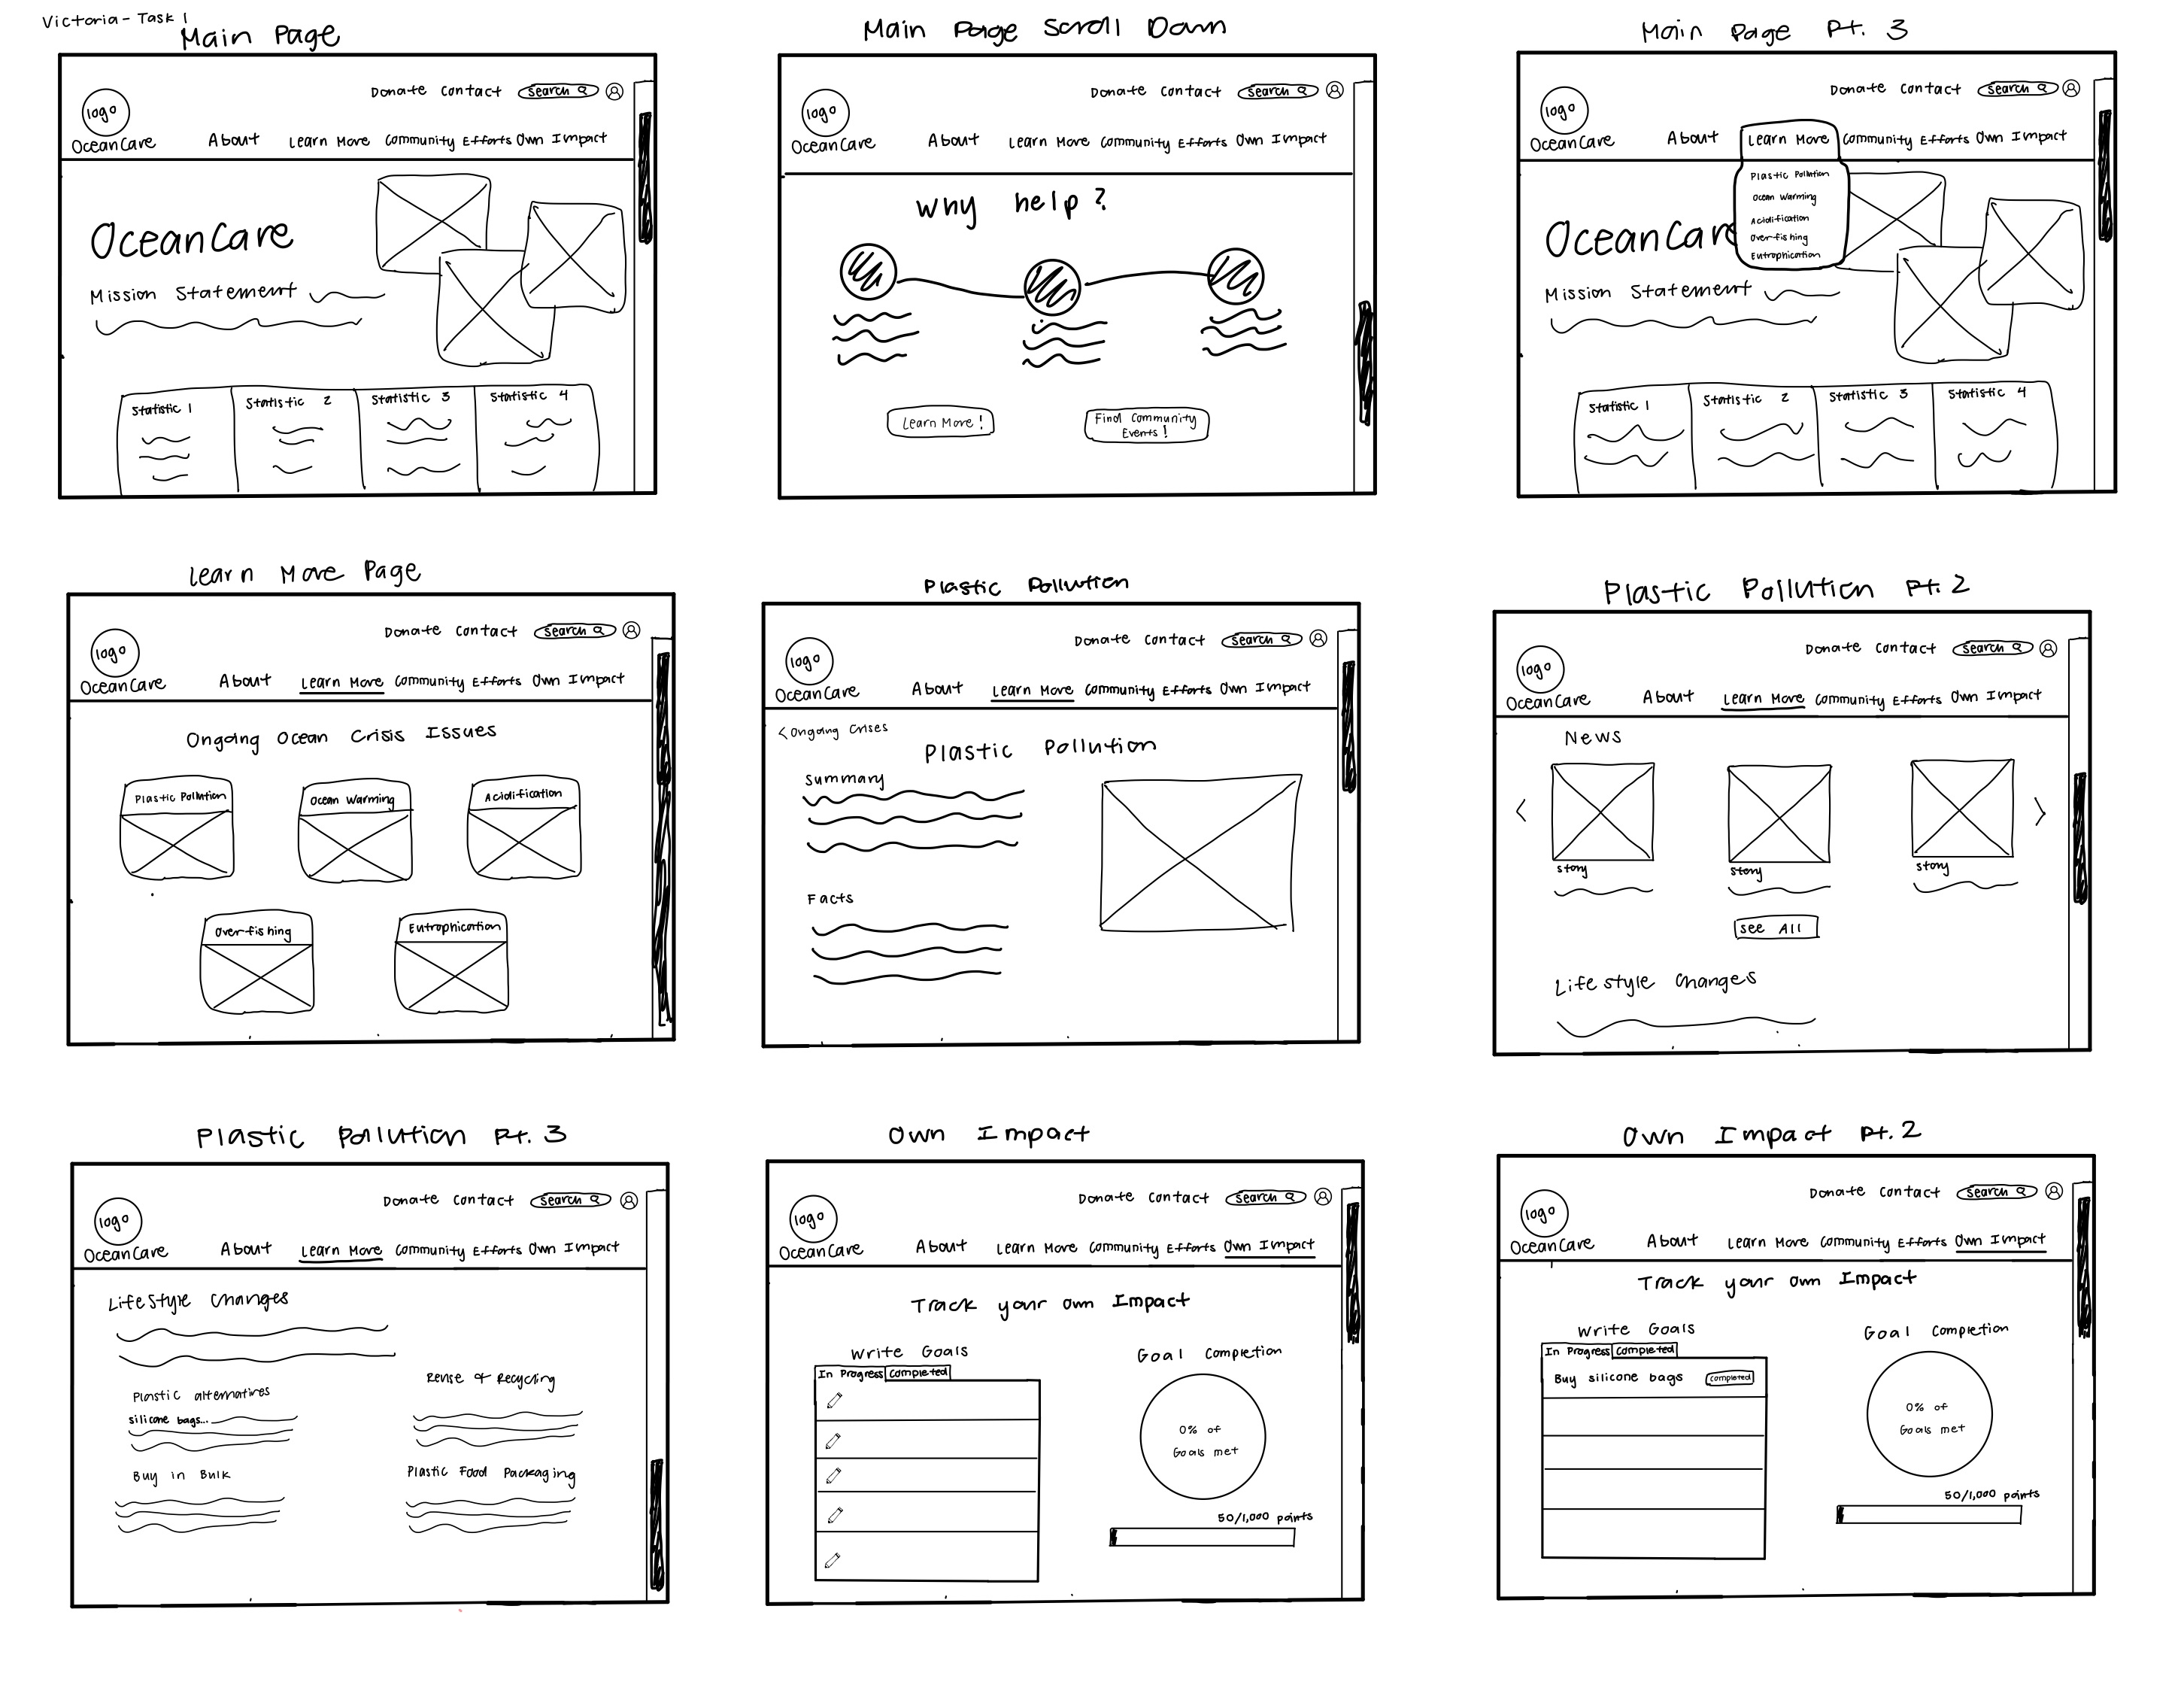 Victoria - Task 1
Main Page
Donate Contact Search
logo
OceanCare
About Learn More Community Efforts Own Impact
OceanCare
Mission Statement
Statistic 1 Statistic 2 Statistic 3 Statistic 4
Main Page Scroll Down
Donate Contact Search
logo
OceanCare
About Learn More Community Efforts Own Impact
Why help?
Learn More!
Find Community
Events!
Main Page Pt. 3
Donate Contact Search
logo
OceanCare
About Learn More Community Efforts Own Impact
Plastic Pollution
Ocean Warming
Acidification
Overfishing
Eutrophication
OceanCare
Mission Statement
Statistic 1 Statistic 2 Statistic 3 Statistic 4
Learn More Page
Donate Contact Search
logo
OceanCare
About Learn More Community Efforts Own Impact
Ongoing Ocean Crisis Issues
Plastic Pollution Ocean Warming Acidification
Overfishing Eutrophication
Plastic Pollution
Donate Contact Search
logo
OceanCare
About Learn More Community Efforts Own Impact
< Ongoing Crises
Plastic Pollution
Summary
Facts
Plastic Pollution Pt. 2
Donate Contact Search
logo
OceanCare
About Learn More Community Efforts Own Impact
News
< >
story story story
See All
Lifestyle Changes
Plastic Pollution Pt. 3
Donate Contact Search
logo
OceanCare
About Learn More Community Efforts Own Impact
Lifestyle Changes
Plastic alternatives
silicone bags...
Reuse & Recycling
Buy in Bulk
Plastic Food Packaging
Own Impact
Donate Contact Search
logo
OceanCare
About Learn More Community Efforts Own Impact
Track your own Impact
Write Goals
In Progress Completed
Goal Completion
0% of
Goals met
50/1,000 points
Own Impact Pt. 2
Donate Contact Search
logo
OceanCare
About Learn More Community Efforts Own Impact
Track your own Impact
Write Goals
In Progress Completed
Buy silicone bags completed
Goal Completion
0% of
Goals met
50/1,000 points